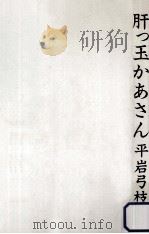 肝っ玉かあさん 平岩弓枝
mtoou.info